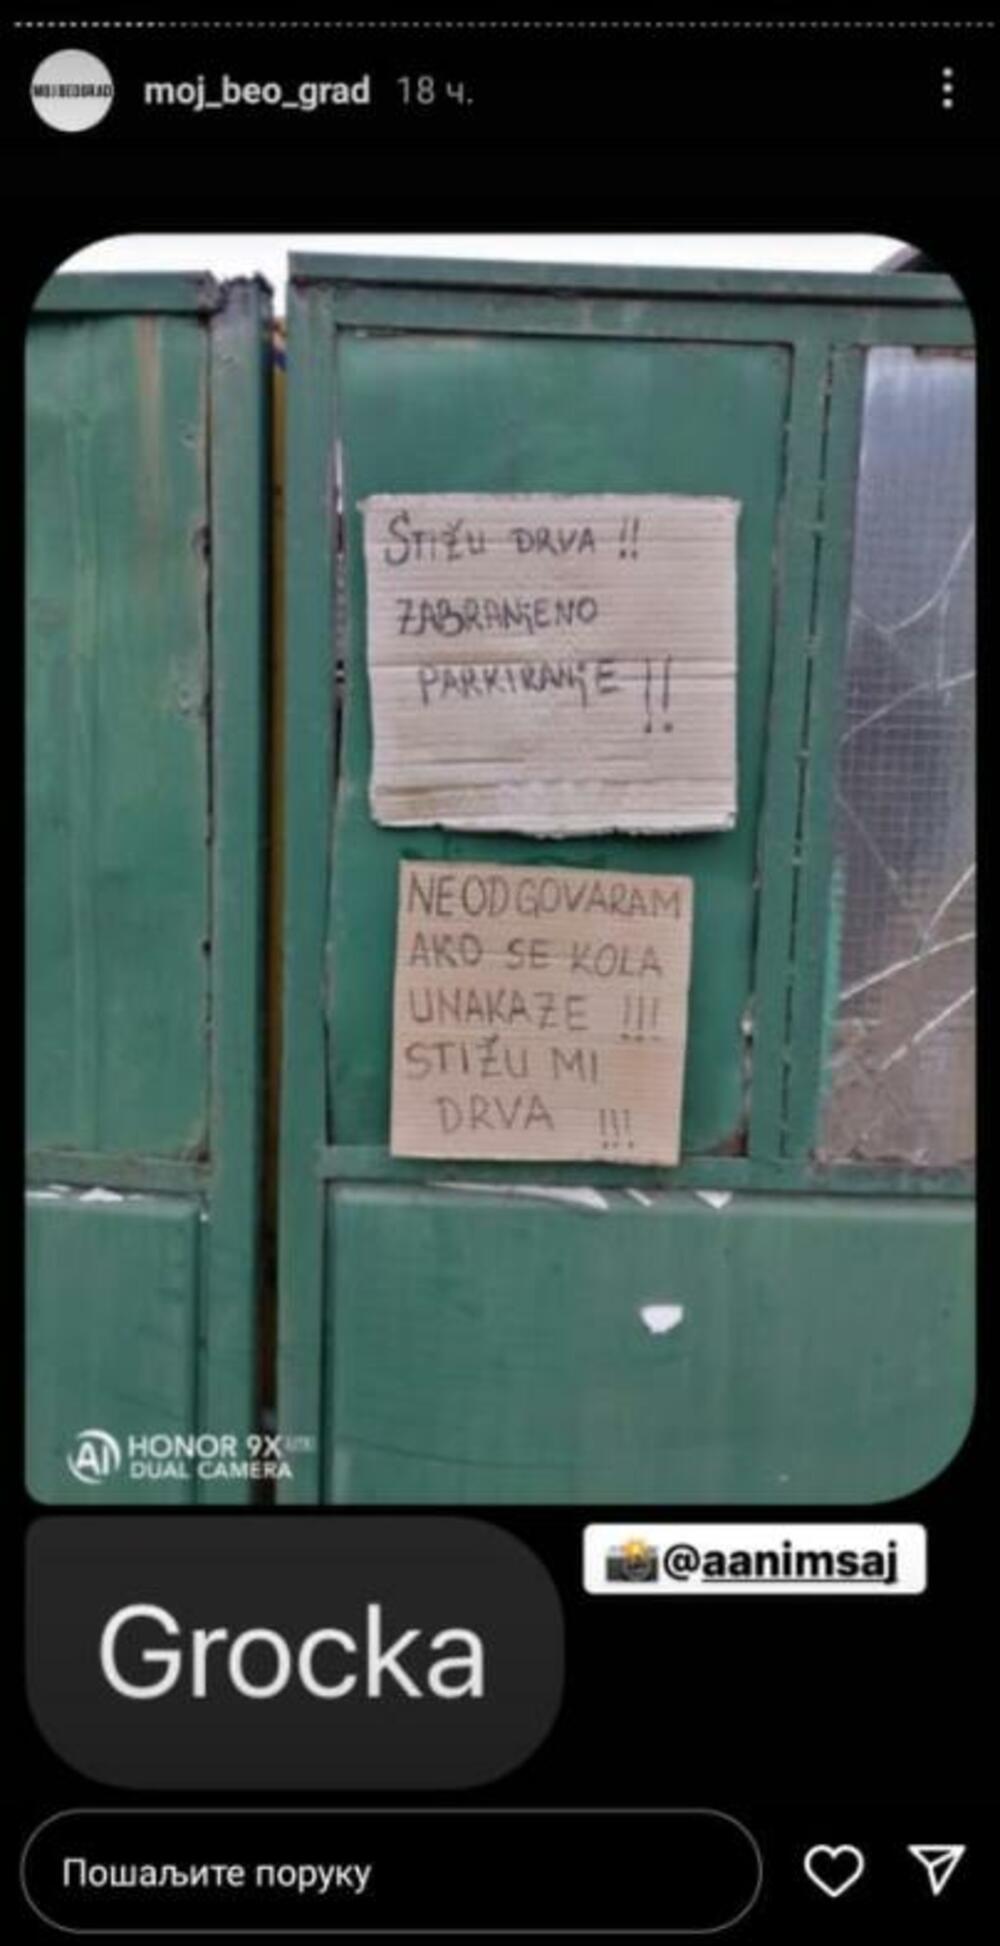 MOJ BEOGRAD
moj_beo_grad 18 ч.
STIŽU DRVA !!
ZABRANjENO
PARKIRANjE !!
NEODGOVARAM
AKO SE KOLA
UNAKAZE !!!
STIŽU MI
DRVA !!!
AI HONOR 9X
DUAL CAMERA
@aanimsaj
Grocka
Пошаљите поруку